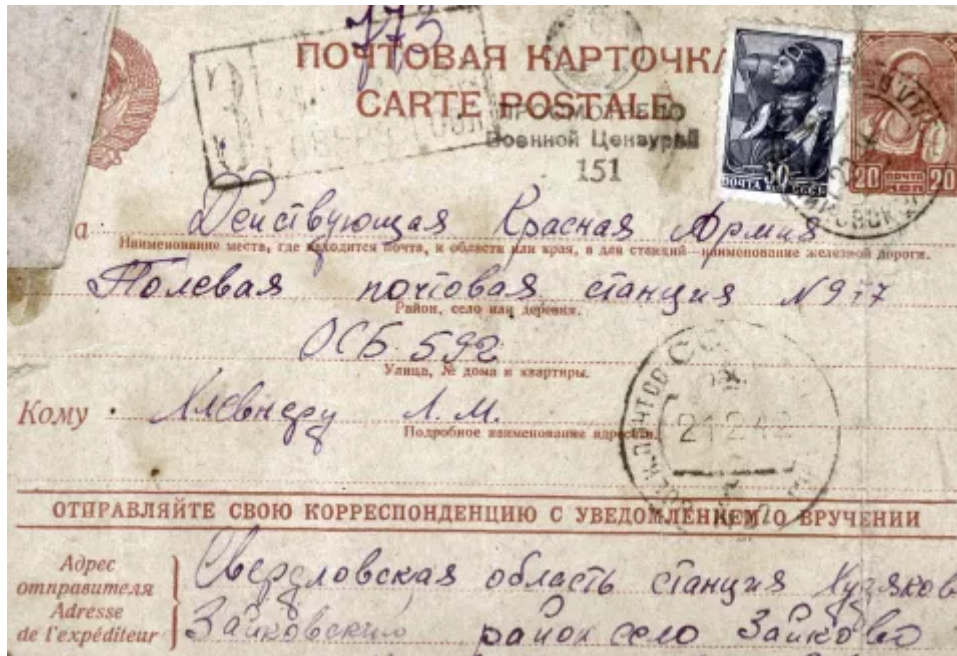 773
ПОЧТОВАЯ КАРТОЧКА
CARTE POSTALE
ПРОСМОТРЕНО
Военной Цензурой
151
30
ПОЧТА СССР
20 ПОЧТА 20
КОП
Действующая Красная Армия
Наименование места, где находится почта, и области или края, а для станций—наименование железной дороги.
Полевая почтовая станция №977
Район, село или деревня.
ОСБ-592
Улица, № дома и квартиры.
Кому Хлевнеру Л. М.
Подробное наименование адресата.
21 2 42
ОТПРАВЛЯЙТЕ СВОЮ КОРРЕСПОНДЕНЦИЮ С УВЕДОМЛЕНИЕМ О ВРУЧЕНИИ
Адрес отправителя
Adresse de l'expéditeur
Свердловская область станция Худяков
Зайковский район село Зайково